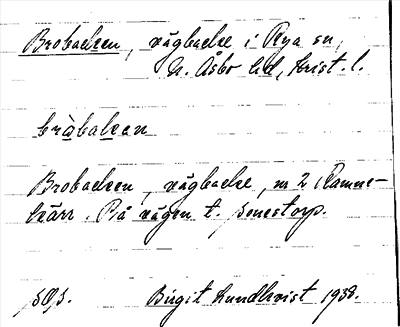 Brobacken, vägbacke i Perstorps... Rya sn,
N. Åsbo hd, Krist. l.
bròbakən
Brobacken, vägbacke, nr 2 Ramne-
kärr. På vägen t. Jonestorp.
Birgit Lundkvist 1938.